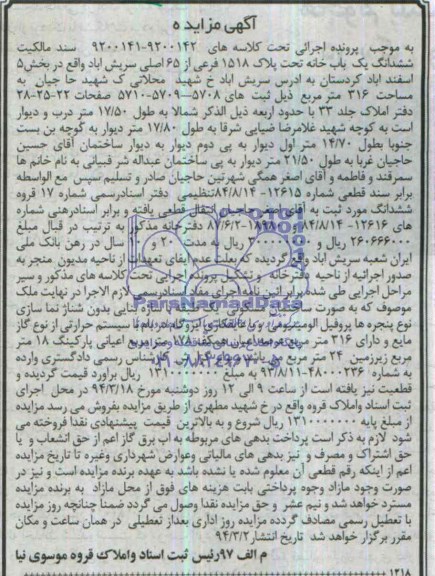 آگهی مزایده
به موجب پرونده اجرائی تحت کلاسه های ۹۲۰۰۱۴۲-۹۲۰۰۱۴۱ سند مالکیت
ششدانگ یک باب خانه تحت پلاک ۱۵۱۸ فرعی از ۶۵ اصلی سریش اباد واقع در بخش۵
اسفند اباد کردستان به ادرس سریش اباد خ شهید محلاتی ک شهید حا جیان به
مساحت ۳۱۶ متر مربع ذیل ثبت های ۵۷۰۸-۵۷۰۹-۵۷۱۰ صفحات ۲۲-۲۵-۲۸
دفتر املاک جلد ۳۳ با حدود اربعه ذیل الذکر شمالا به طول ۱۷/۵۰ متر درب و دیوار
است به کوچه شهید غلامرضا ضیایی شرقا به طول ۱۷/۸۰ متر دیوار به کوچه بن بست
جنوبا بطول ۱۴/۷۰ متر اول دیوار به پی دوم دیوار به دیوار ساختمان آقای حسین
حاجیان غربا به طول ۲۱/۵۰ متر دیوار به پی ساختمان عبداله شر قبیانی به نام خانم ها
سمرقند و فاطمه و آقای اصغر همگی شهرتین حاجیان صادر و تسلیم سپس مع الواسطه
برابر سند قطعی شماره ۱۲۶۱۵-۸۴/۸/۱۴تنظیمی دفتر اسنادرسمی شماره ۱۷ قروه
ششدانگ مورد ثبت به آقای اصغر حاجیان انتقال قطعی یافته و برابر اسنادرهنی شماره
های ۱۲۶۱۶-۸۴/۸/۱۴ ۸۷/۶/۲ دفترخانه مذکور به ترتیب در قبال مبلغ
۲۶۰۶۶۰۰۰ ریال و ریال به مدت ۲۰ و سال در رهن بانک ملی
ایران شعبه سریش اباد واقع گردیده که بعلت عدم ایفای تعهدات از ناحیه مدیون منجر به
صدور اجرائیه از ناحیه دفترخانه و تشکیل پرونده اجرایی تحت کلاسه های مذکور و سیر
مراحل اجرایی طی شده برابر ائین نامه اجرای مفاد اسنادرسمی لازم الاجرا در نهایت ملک
موصوف که به صورت نمایی بدون شناژ نما سازی
نوع پنجره ها پروفیل الومینیومی سیستم حرارتی از نوع گاز
مایع و دارای ۳۱۶ متر مربع عرصه اعیان ۱۷۸ متر مربع اعیانی پارکینگ ۱۸ متر
مربع زیرزمین ۲۴ متر مربع می باشد کارشناس رسمی دادگستری وارده
به شماره ۴۸۰۰۰۲۳۶-۹۳/۸/۱۱ به مبلغ ۱۳۱۰۰۰۰۰۰۰ ریال براورد قیمت گردیده و
قطعیت نیز یافته است از ساعت ۹ الی ۱۲ روز دوشنبه مورخ ۹۴/۳/۱۸ در محل اجرای
ثبت اسناد واملاک قروه واقع در خ شهید مطهری از طریق مزایده بفروش می رسد مزایده
از مبلغ پایه ۱۳۱۰۰۰۰۰۰۰ ریال شروع و به بالاترین قیمت پیشنهادی نقدا فروخته می
شود لازم به ذکر است پرداخت بدهی های مربوطه به اب برق گاز اعم از حق انشعاب و یا
حق اشتراک و مصرف و نیز بدهی های مالیاتی وعوارض شهرداری وغیره تا تاریخ مزایده
اعم از اینکه رقم قطعی آن معلوم شده یا نشده باشد به عهده برنده مزایده است و نیز در
صورت وجود مازاد وجوه پرداختی بابت هزینه های فوق از محل مازاد به برنده مزایده
مسترد خواهد شد و نیم عشر و حق مزایده نقدا وصول می گردد ضمنا چنانچه روز مزایده
با تعطیل رسمی مصادف گردده مزایده روز اداری بعداز تعطیلی در همان ساعت و مکان
مقرر برگزار خواهد شد تاریخ انتشار۹۴/۳/۲
م الف ۹۷رئیس ثبت اسناد واملاک قروه موسوی نیا
۱۲۱۸
ParsNamadData